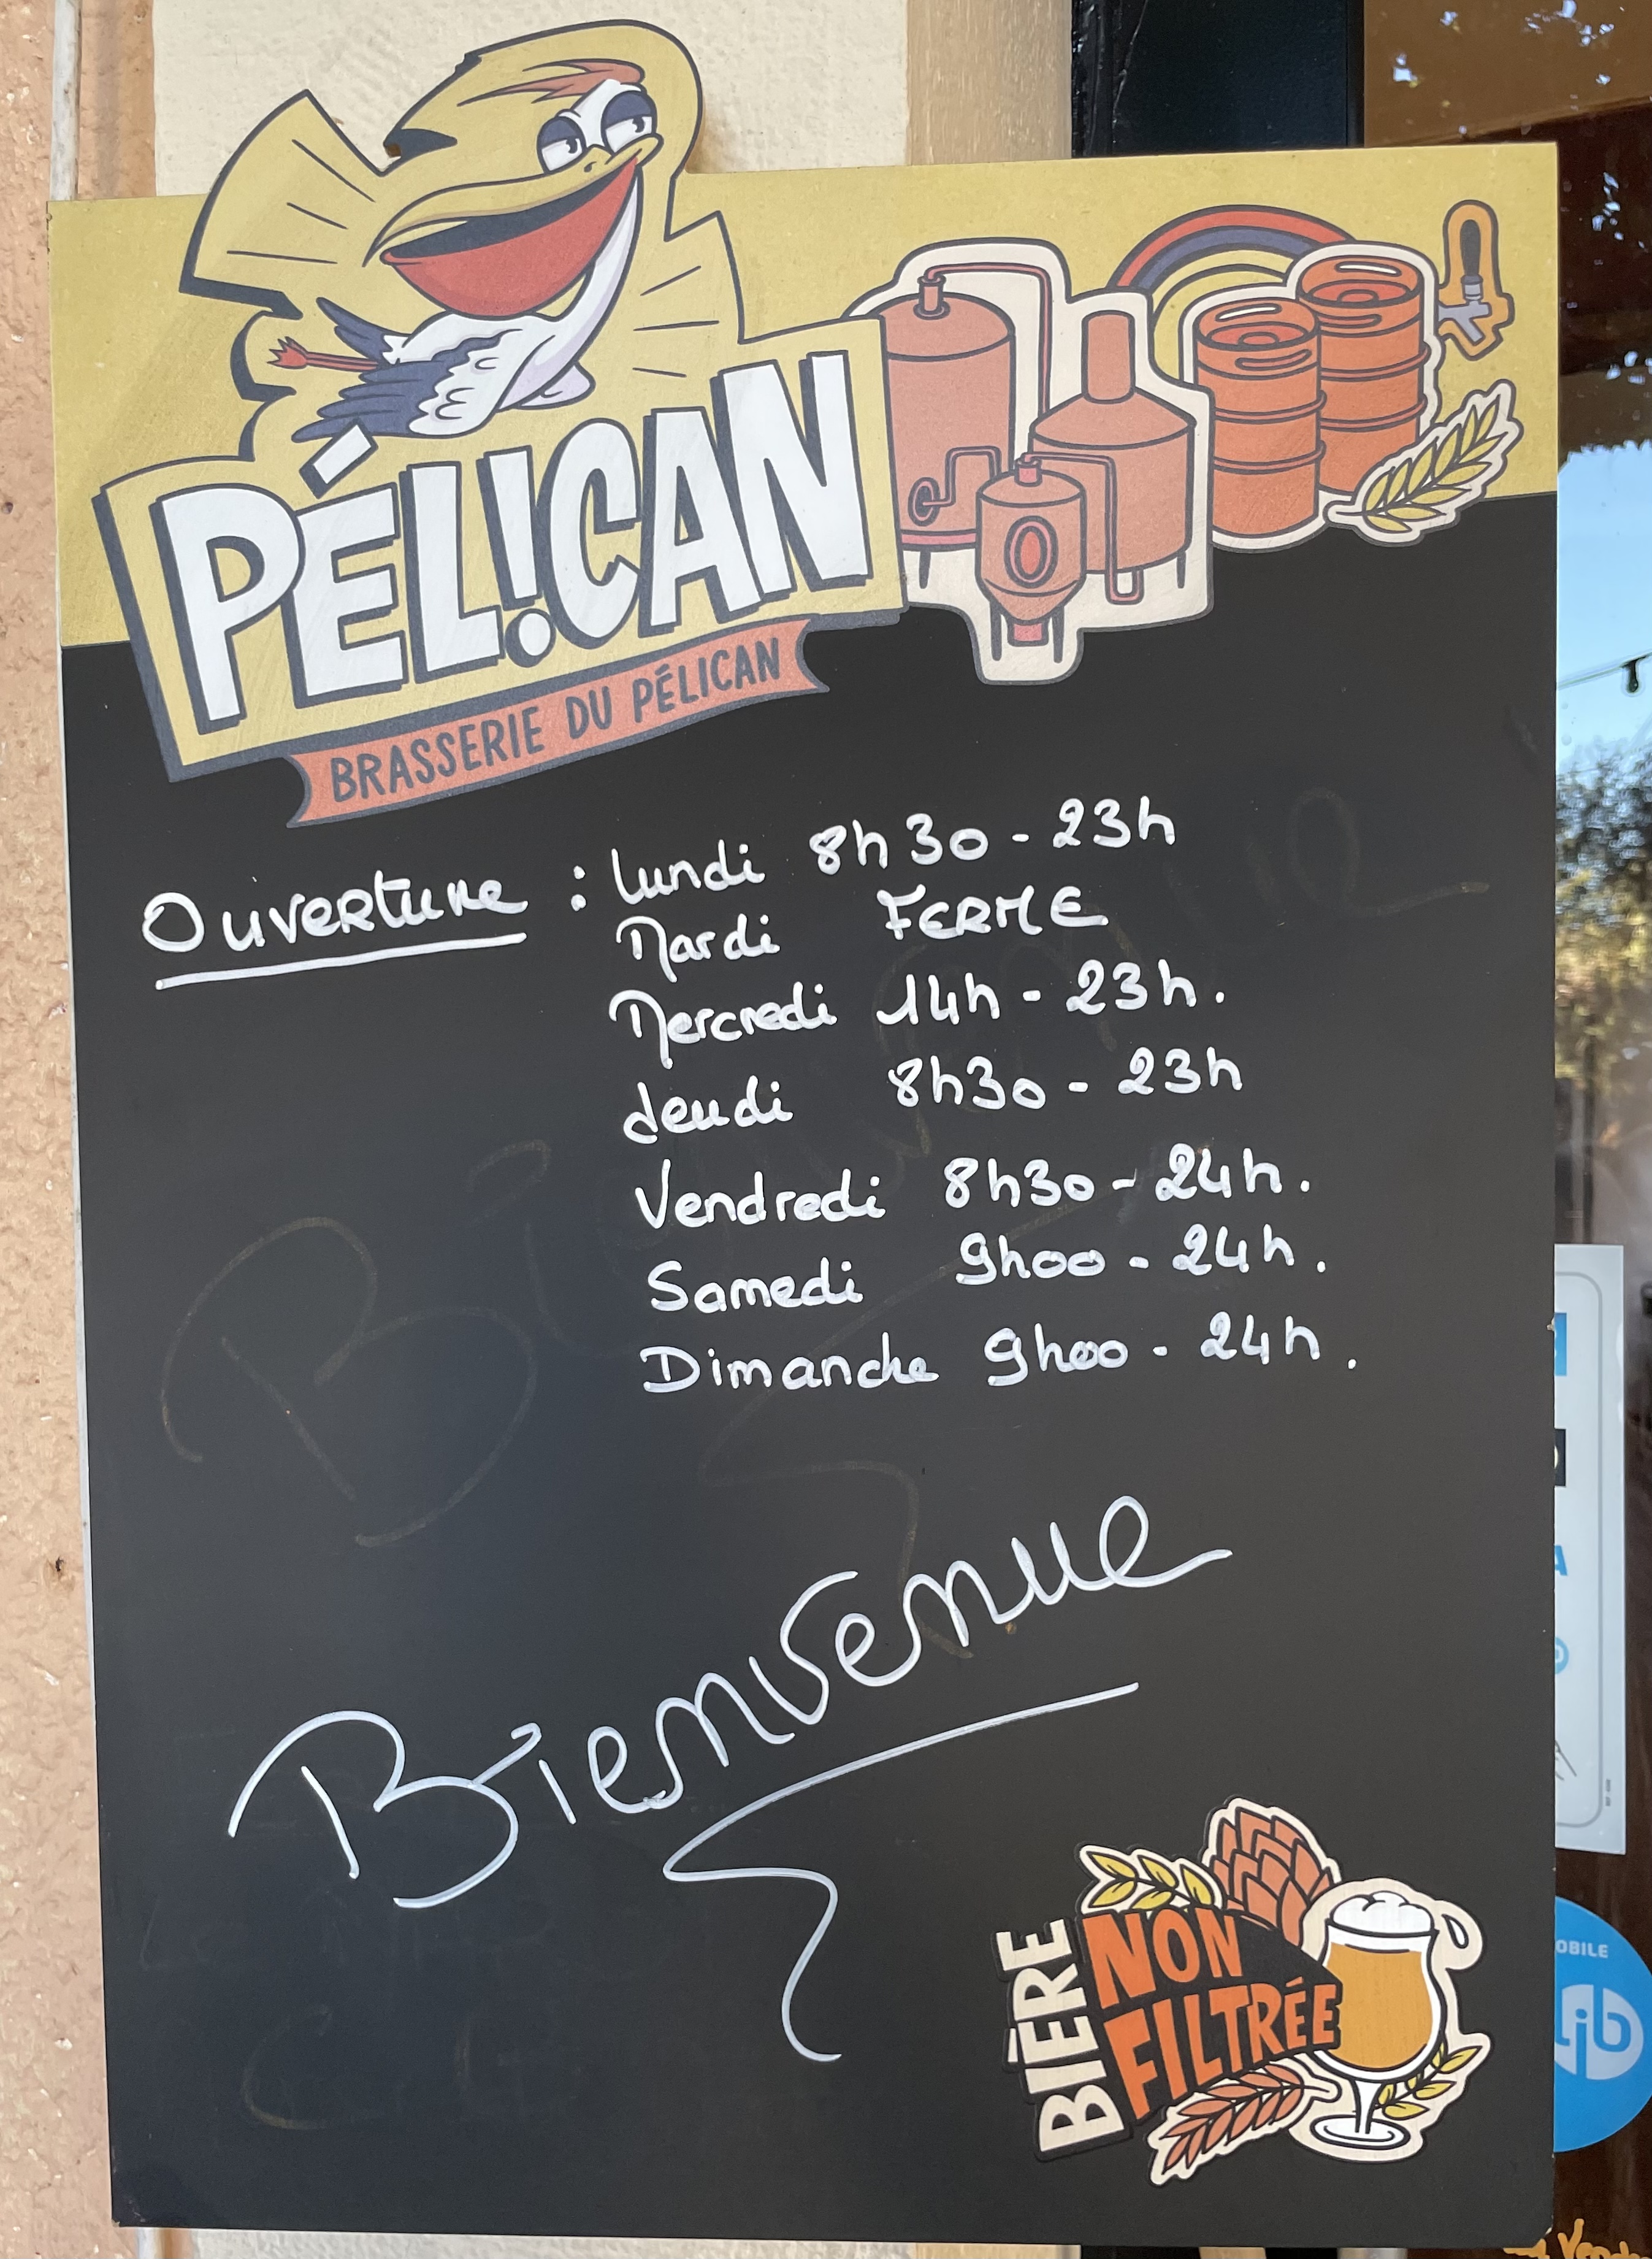 PÉL!CAN
BRASSERIE DU PÉLICAN
Ouverture : lundi 8h30 - 23h
Mardi FERME
Mercredi 14h - 23h.
Jeudi 8h30 - 23h
Vendredi 8h30 - 24h.
Samedi 9h00 - 24h.
Dimanche 9h00 - 24h.
Bienvenue
BIÈRE
NON
FILTRÉE